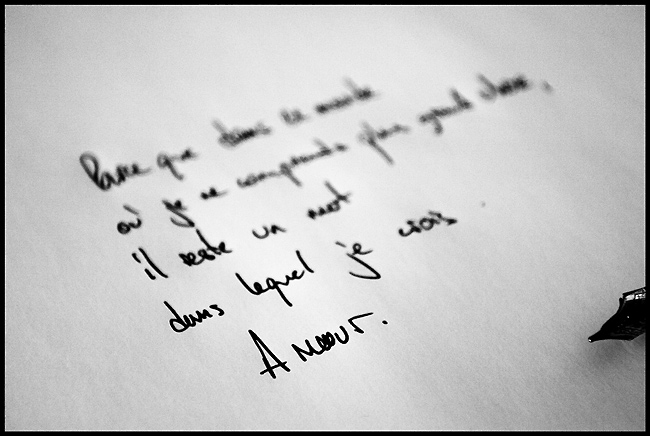 Parce que dans ce monde
où je ne comprends plus grand chose,
il reste un mot
dans lequel je crois
Amour.